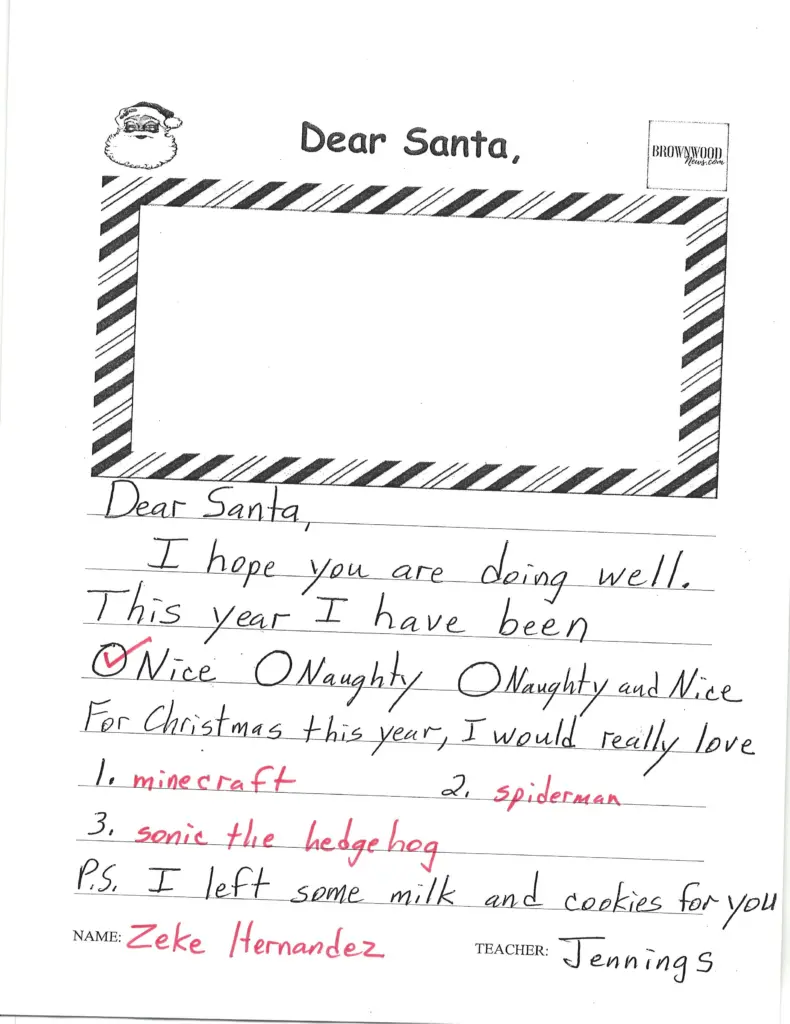 Dear Santa,
BROWNWOOD
News.com
Dear Santa,
I hope you are doing well.
This year I have been
Nice Naughty Naughty and Nice
For Christmas this year, I would really love
1. minecraft 2. spiderman
3. sonic the hedgehog
P.S. I left some milk and cookies for you
NAME: Zeke Hernandez TEACHER: Jennings